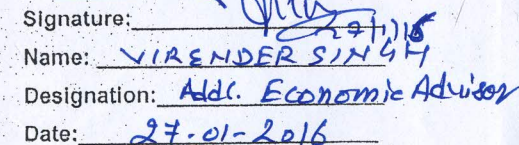 Signature:
Name: VIRENDER SINGH
Designation: Addl. Economic Advisor
Date: 27-01-2016